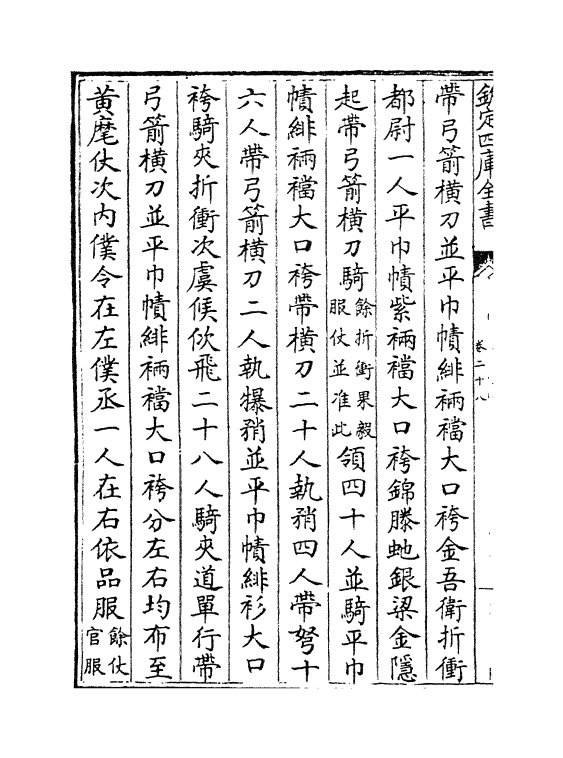 欽定四庫全書
卷二十八
帶弓箭橫刀並平巾幘緋裲襠大口袴金吾衛折衝
都尉一人平巾幘紫裲襠大口袴錦滕虵銀梁金隱
起帶弓箭橫刀騎餘折衝果毅服仗並准此領四十人並騎平巾
幘緋裲襠大口袴帶橫刀二十人執矟四人帶弩十
六人帶弓箭橫刀二人執㩧矟並平巾幘緋衫大口
袴騎夾折衝次虞候佽飛二十八人騎夾道單行帶
弓箭橫刀並平巾幘緋裲襠大口袴分左右均布至
黃麾仗次內僕令在左僕丞一人在右依品服餘仗官服